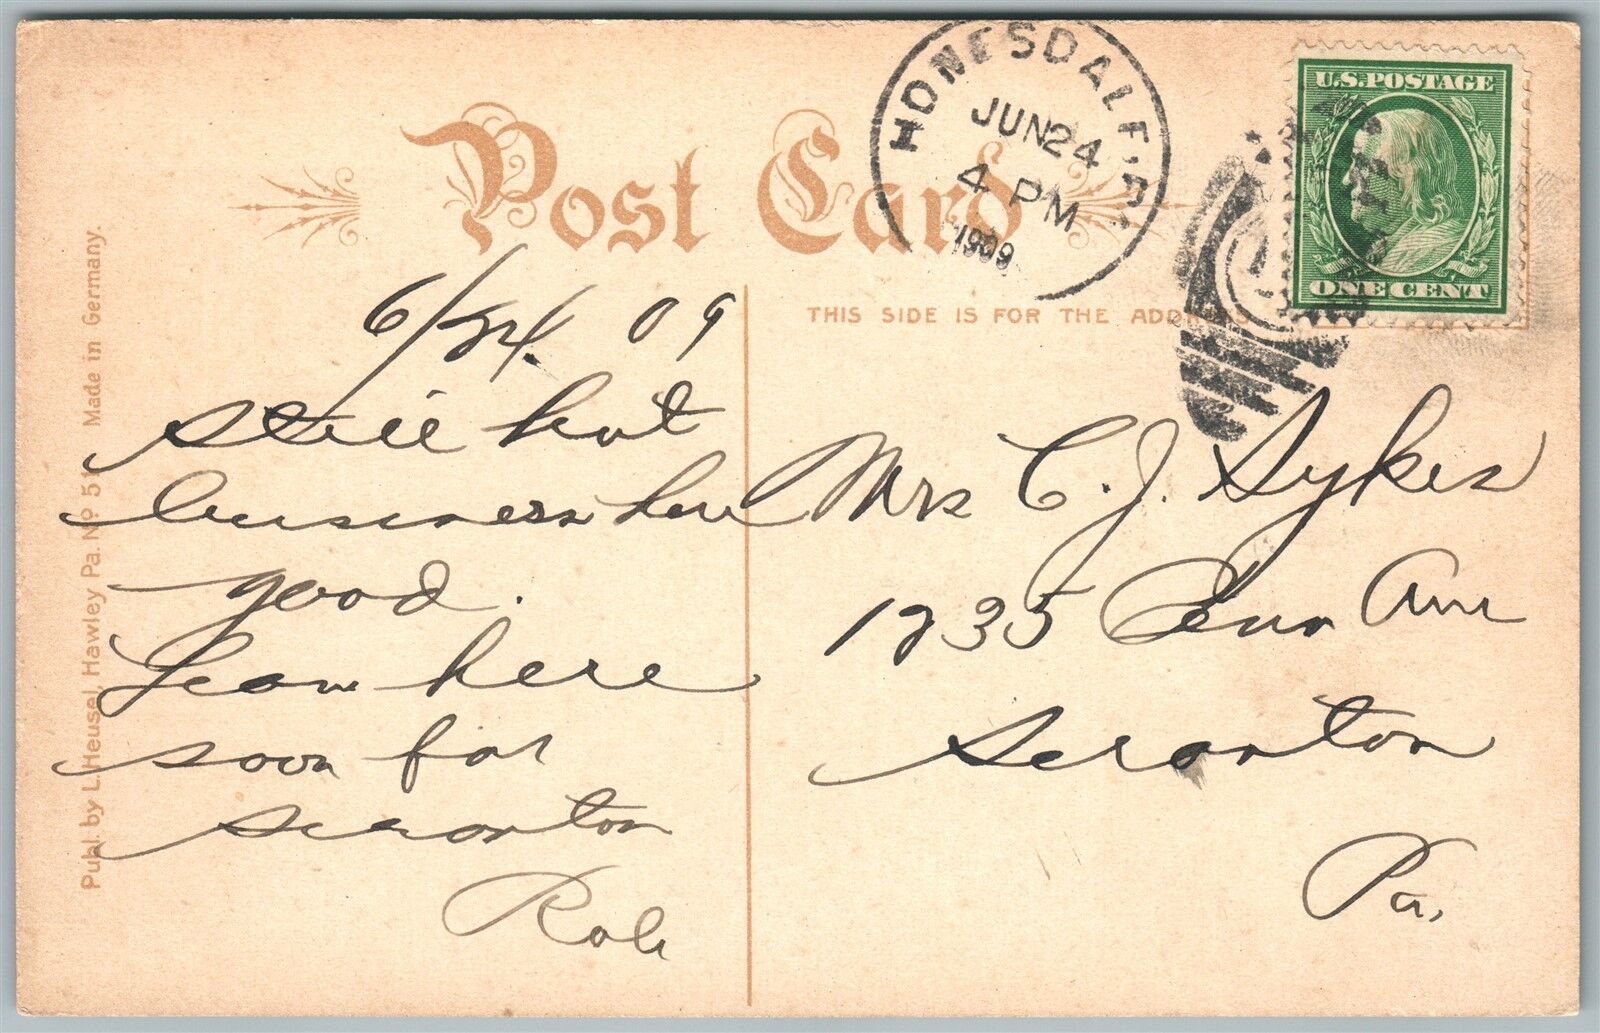 Post Card
HONESDALE, PA.
JUN 24
4 PM
1909
U.S. POSTAGE
ONE CENT
THIS SIDE IS FOR THE ADDRESS
Publ. by L. Heusel, Hawley Pa. No 51 Made in Germany.
6/24. 09
Still hot
business here
good.
Leave here
soon for
Scranton
Rob
Mrs C. J. Sykes
1235 Penn Ave
Scranton
Pa.